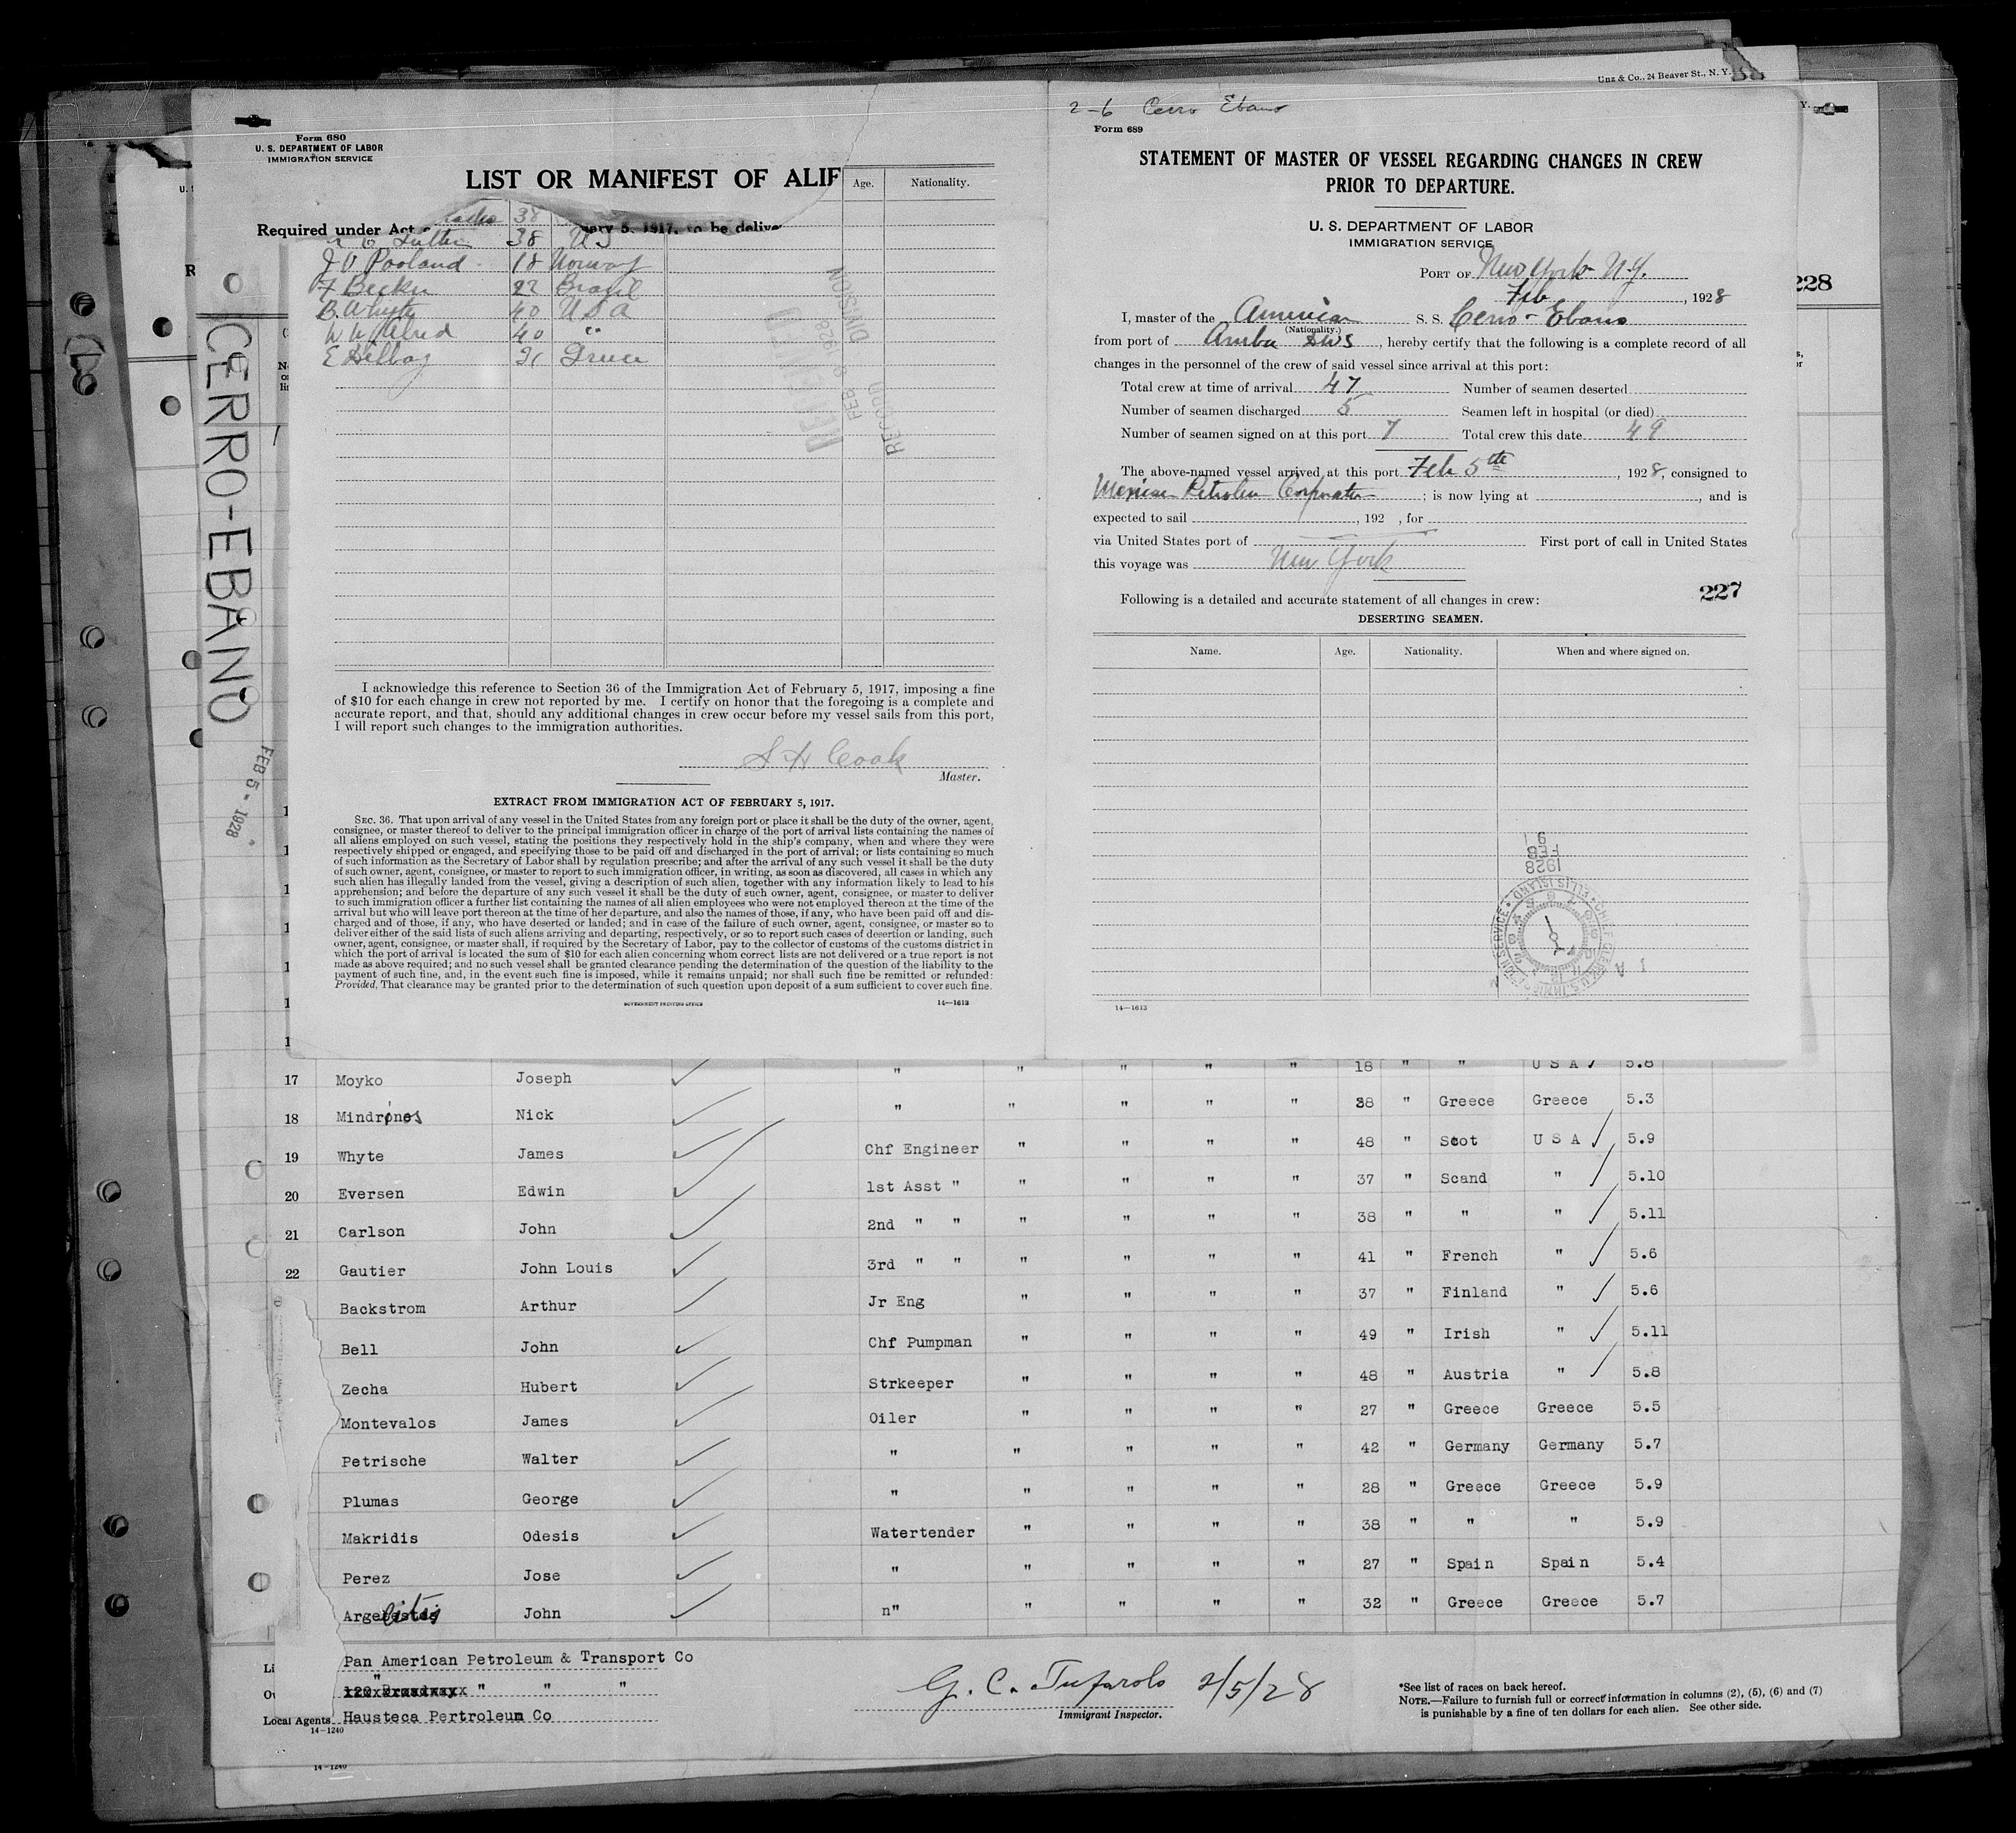 Unz & Co., 24 Beaver St., N. Y.
Form 680
U. S. DEPARTMENT OF LABOR
IMMIGRATION SERVICE
LIST OR MANIFEST OF ALIE
Age. Nationality.
38
Required under Act ary 5, 1917, to be delive
38 U S
J O Pooland 18 Norway
F Becker 22 Brazil
B. Whyte 40 U S A
W W Alred 40 "
E 31 Greece
FEB 8 1928
RECORD DIVISION
CERRO-EBANO
FEB 5 - 1928
I acknowledge this reference to Section 36 of the Immigration Act of February 5, 1917, imposing a fine
of $10 for each change in crew not reported by me. I certify on honor that the foregoing is a complete and
accurate report, and that, should any additional changes in crew occur before my vessel sails from this port,
I will report such changes to the immigration authorities.
S H Cook
Master.
EXTRACT FROM IMMIGRATION ACT OF FEBRUARY 5, 1917.
SEC. 36. That upon arrival of any vessel in the United States from any foreign port or place it shall be the duty of the owner, agent,
consignee, or master thereof to deliver to the principal immigration officer in charge of the port of arrival lists containing the names of
all aliens employed on such vessel, stating the positions they respectively hold in the ship's company, when and where they were
respectively shipped or engaged, and specifying those to be paid off and discharged in the port of arrival; or lists containing so much
of such information as the Secretary of Labor shall by regulation prescribe; and after the arrival of any such vessel it shall be the duty
of such owner, agent, consignee, or master to report to such immigration officer, in writing, as soon as discovered, all cases in which any
such alien has illegally landed from the vessel, giving a description of such alien, together with any information likely to lead to his
apprehension; and before the departure of any such vessel it shall be the duty of such owner, agent, consignee, or master to deliver
to such immigration officer a further list containing the names of all alien employees who were not employed thereon at the time of the
arrival but who will leave port thereon at the time of her departure, and also the names of those, if any, who have been paid off and dis-
charged and of those, if any, who have deserted or landed; and in case of the failure of such owner, agent, consignee, or master so to
deliver either of the said lists of such aliens arriving and departing, respectively, or so to report such cases of desertion or landing, such
owner, agent, consignee, or master shall, if required by the Secretary of Labor, pay to the collector of customs of the customs district in
which the port of arrival is located the sum of $10 for each alien concerning whom correct lists are not delivered or a true report is not
made as above required; and no such vessel shall be granted clearance pending the determination of the question of the liability to the
payment of such fine, and, in the event such fine is imposed, while it remains unpaid; nor shall such fine be remitted or refunded:
Provided, That clearance may be granted prior to the determination of such question upon deposit of a sum sufficient to cover such fine.
GOVERNMENT PRINTING OFFICE 14—1613
2-6 Cerro Ebano
Form 689
STATEMENT OF MASTER OF VESSEL REGARDING CHANGES IN CREW
PRIOR TO DEPARTURE.
U. S. DEPARTMENT OF LABOR
IMMIGRATION SERVICE
PORT OF New York N.Y.
Feb , 1928
228
I, master of the American S. S. Cerro-Ebano
(Nationality.)
from port of Aruba DWS , hereby certify that the following is a complete record of all
changes in the personnel of the crew of said vessel since arrival at this port:
Total crew at time of arrival 47 Number of seamen deserted
Number of seamen discharged 5 Seamen left in hospital (or died)
Number of seamen signed on at this port 7 Total crew this date 49
The above-named vessel arrived at this port Feb 5th , 1928, consigned to
Mexican Petroleum Corporation ; is now lying at , and is
expected to sail , 192 , for
via United States port of First port of call in United States
this voyage was New York
227
Following is a detailed and accurate statement of all changes in crew:
DESERTING SEAMEN.
Name. Age. Nationality. When and where signed on.
FEB
1928
14—1613
18 " " U S A 5.8
17 Moyko Joseph " " " " "
18 Mindrinos Nick " " " " " 38 " Greece Greece 5.3
19 Whyte James Chf Engineer " " " " 48 " Scot U S A 5.9
20 Eversen Edwin 1st Asst " " " " " 37 " Scand " 5.10
21 Carlson John 2nd " " " " " " 38 " " " 5.11
22 Gautier John Louis 3rd " " " " " " 41 " French " 5.6
Backstrom Arthur Jr Eng " " " " 37 " Finland " 5.6
Bell John Chf Pumpman " " " " 49 " Irish " 5.11
Zecha Hubert Strkeeper " " " " 48 " Austria " 5.8
Montevalos James Oiler " " " " 27 " Greece Greece 5.5
Petrische Walter " " " " " 42 " Germany Germany 5.7
Plumas George " " " " " 28 " Greece Greece 5.9
Makridis Odesis Watertender " " " " 38 " " " 5.9
Perez Jose " " " " " 27 " Spain Spain 5.4
John n" " " " " 32 " Greece Greece 5.7
Li Pan American Petroleum & Transport Co
Ow " " " "
Local Agents Hausteca Pertroleum Co
14-1240
G. C. Tufarolo 2/5/28
Immigrant Inspector.
*See list of races on back hereof.
NOTE.—Failure to furnish full or correct information in columns (2), (5), (6) and (7)
is punishable by a fine of ten dollars for each alien. See other side.
14-1240